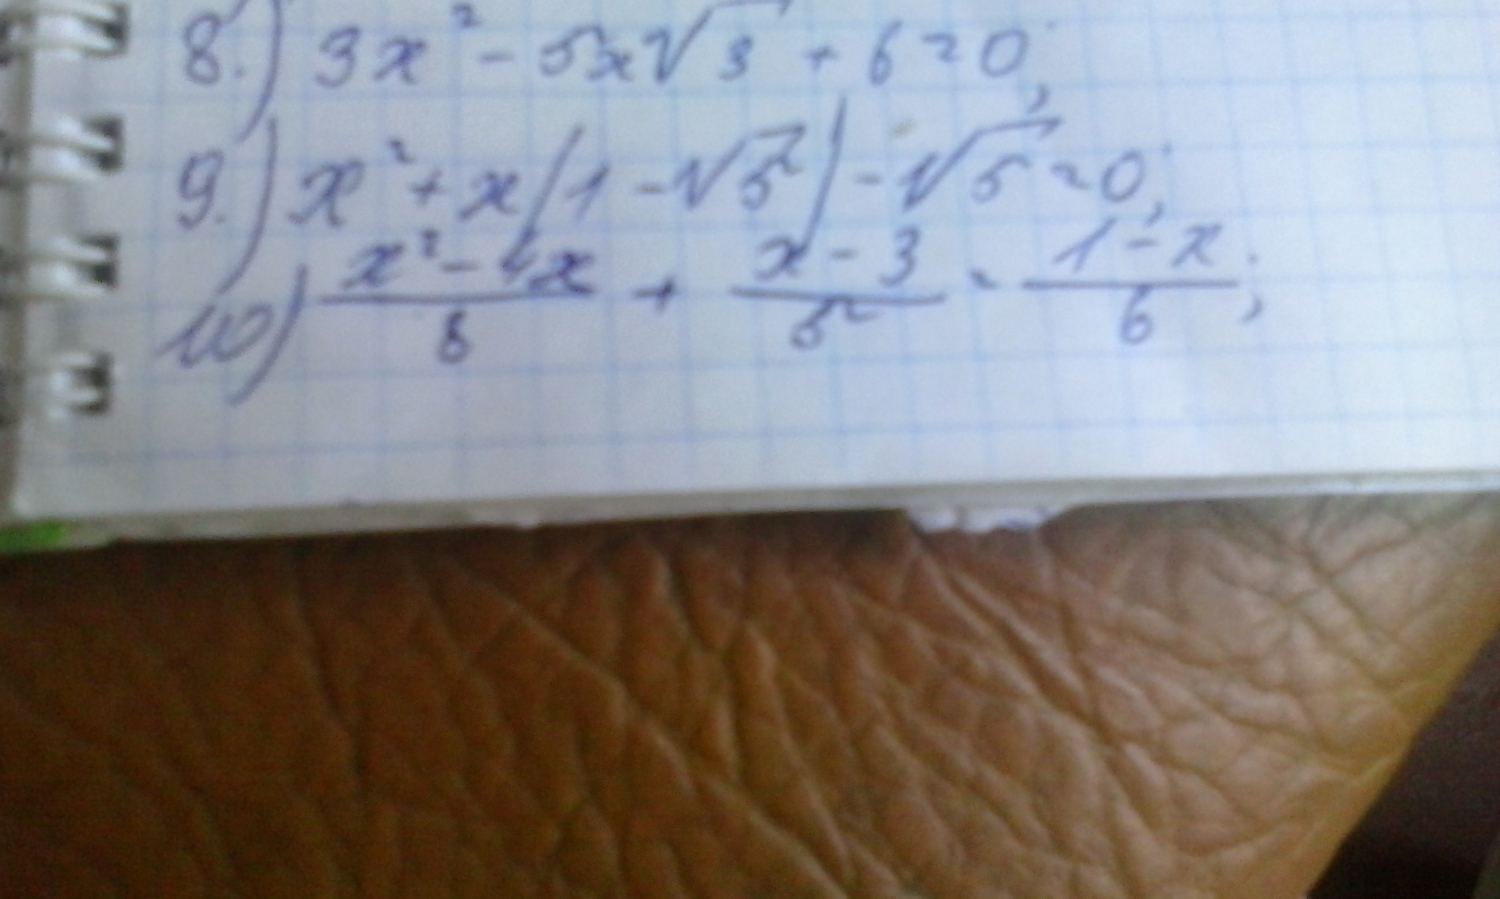 8.) 3x² - 5x√3 + 6 = 0;
9.) x² + x(1 - √5) - √5 = 0;
10) (x² - 4x)/8 + (x - 3)/5 = (1 - x)/6;